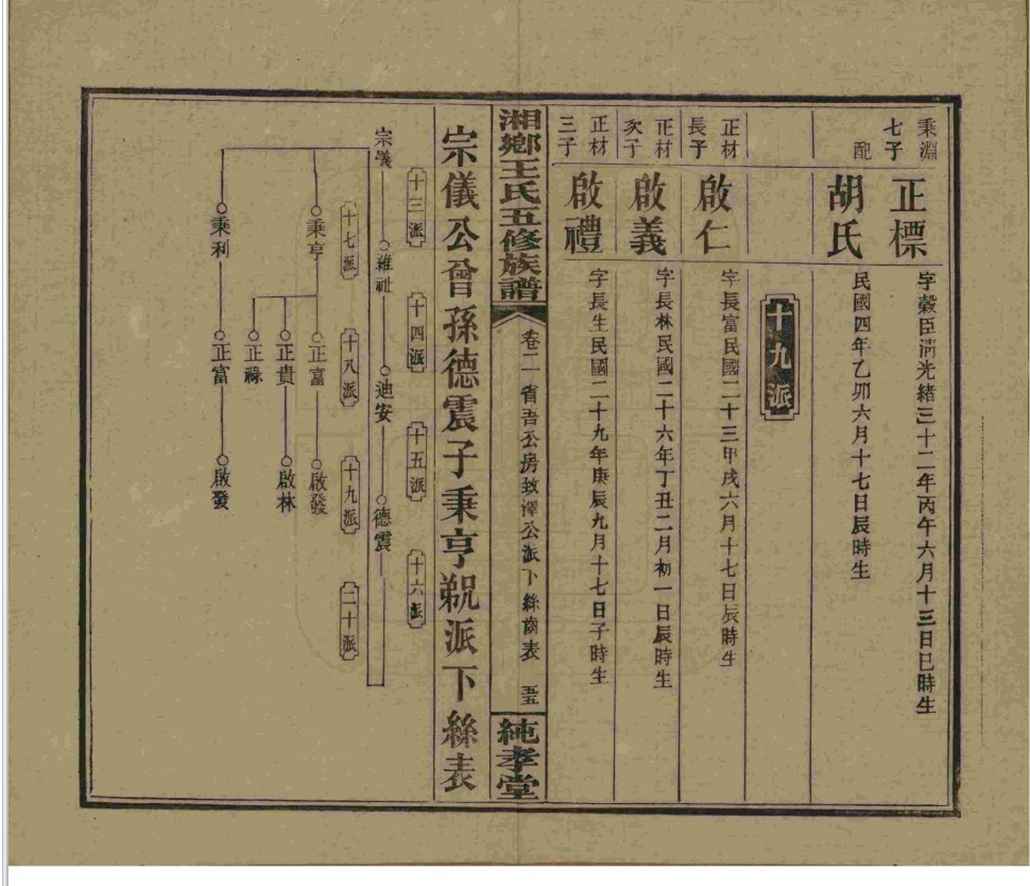 秉淵七子
正標
字穀臣清光緒三十二年丙午六月十三日巳時生
配
胡氏
民國四年乙卯六月十七日辰時生
十九派
正材長子
啟仁
字長富民國二十三甲戌六月十七日辰時生
正材次子
啟義
字長林民國二十六年丁丑二月初一日辰時生
正材三子
啟禮
字長生民國二十九年庚辰九月十七日子時生
湘鄉王氏五修族譜
卷二 省吾公房致澤公派下絲齒表 五五
純孝堂
宗儀公曾孫德震子秉亨派下絲表
十三派
十四派
十五派
十六派
宗儀
維祉
迪安
德震
十七派
十八派
十九派
二十派
秉亨
正富
啟發
正貴
啟林
正祿
秉利
正富
啟發